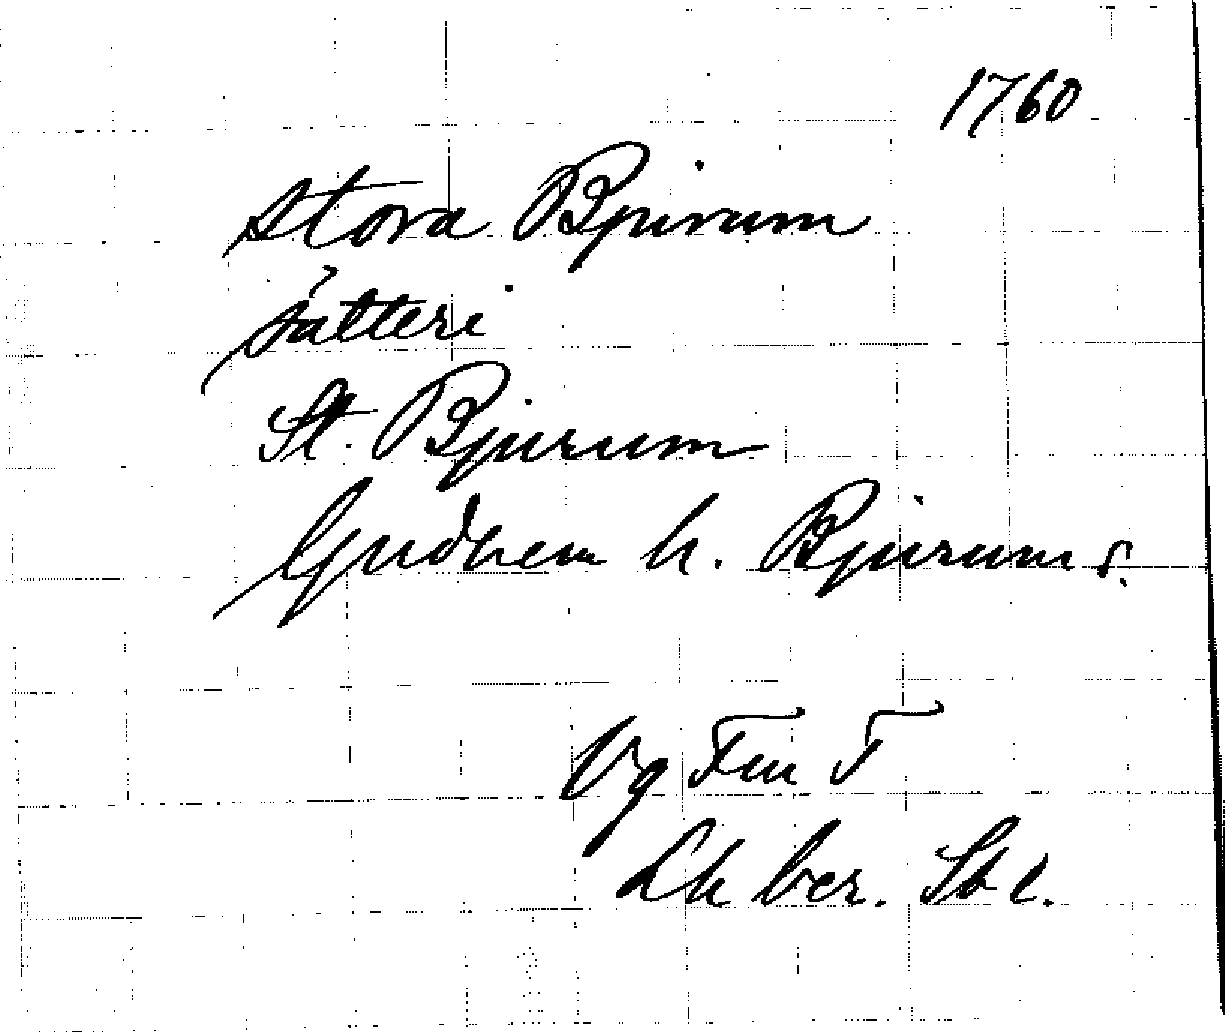 1760
Stora Bjurum
säteri
St. Bjurum
Gudhem h. Bjurum s.
Vg Fm T
Lk ber. Sbl.